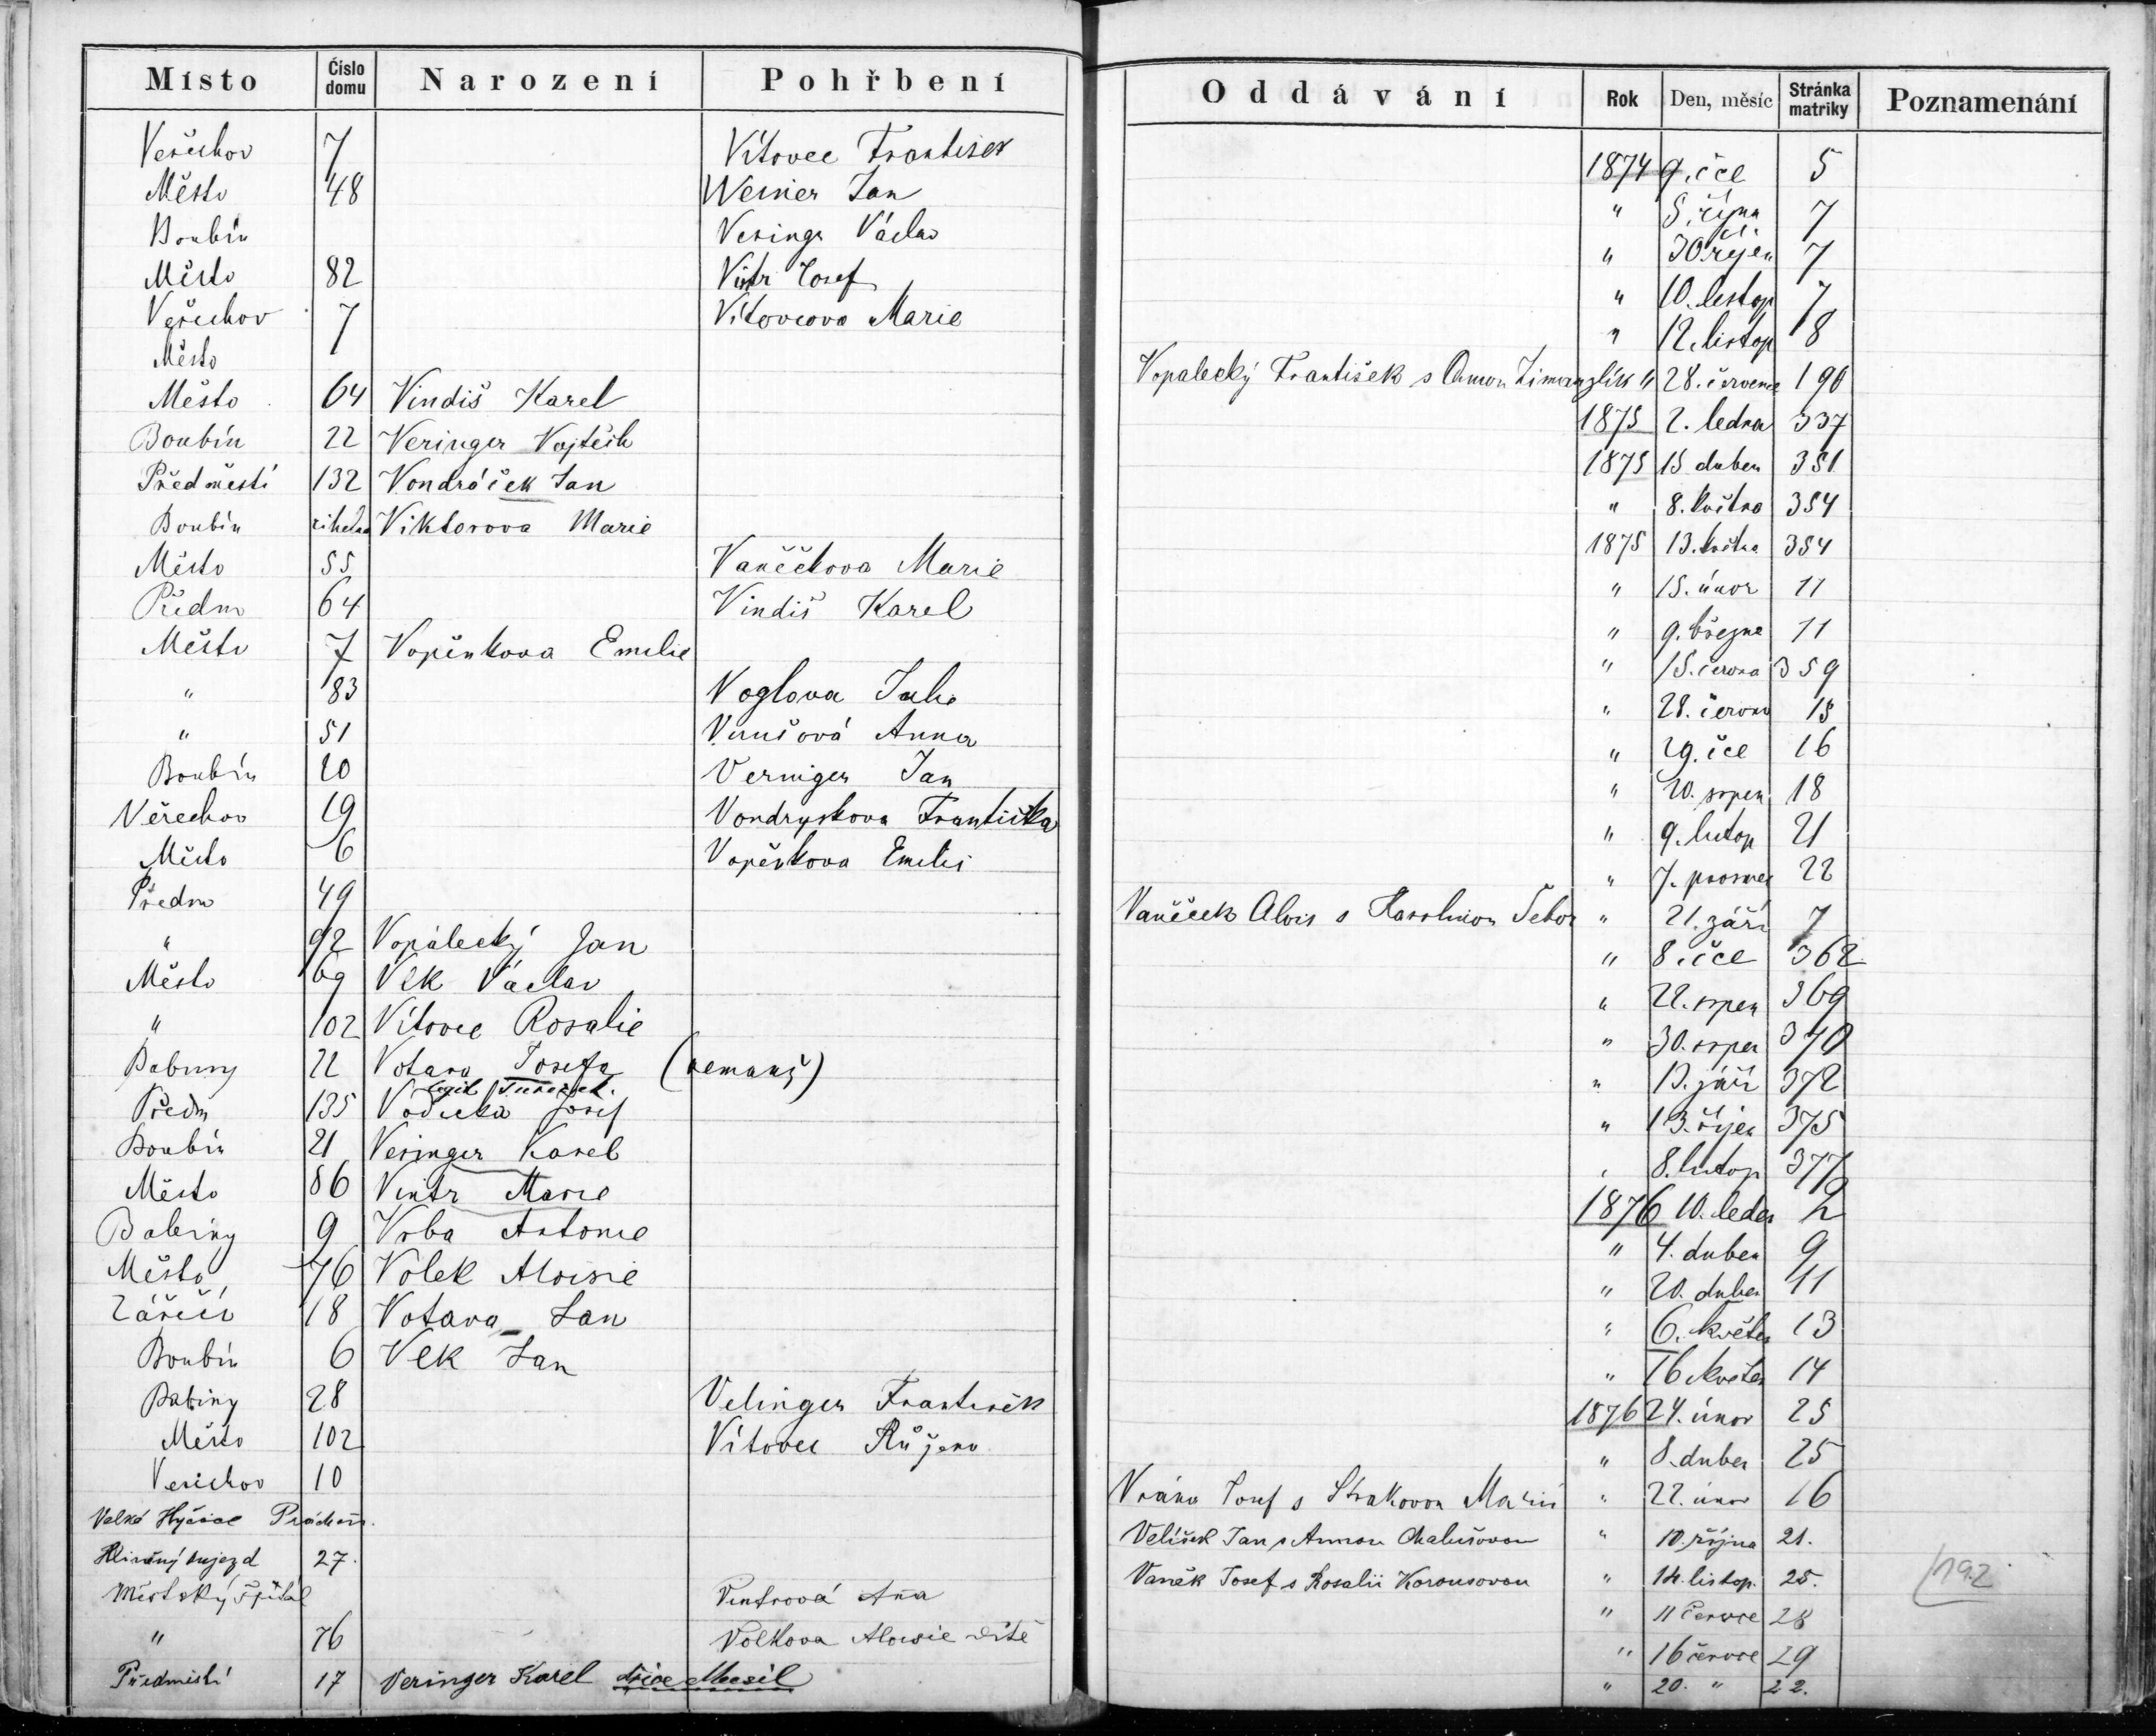 Místo Číslo domu Narození Pohřbení Oddávání Rok Den, měsíc Stránka matriky Poznamenání
Veřechov 7 Vítovec František 1874 9. čce 5
Město 48 Werner Jan " 5. října 7
Boubín Veringr Václav " 30. říjen 7
Město 82 Vintr Josef " 10. listop 7
Veřechov 7 Vítovcova Marie " 12. listop 8
Město Vopalecký František s Annou " 28. července 190
Město 64 Vindiš Karel 1875 2. ledna 337
Boubín 22 Veringer Vojtěch 1875 15 duben 351
Předměstí 132 Vondráček Jan " 8. května 354
Boubín Viktorova Marie 1875 13. květn 354
Město 55 Vaněčkova Marie " 15. únor 11
Předm 64 Vindiš Karel " 9. březne 11
Město 7 Vopěnkova Emilie " 15. června 359
" 83 Voglova Julie " 28. června 15
" 51 Anna " 29. čce 16
Boubín 20 Verniger Jan " 20. srpen 18
Věřechov 19 Vondryskova Františka " 9. listop 21
Město 6 Vopěnkova Emilie " 7. prosinec 22
Předm 49 Vaněček Alois s Karolinou Šebor " 21. září 7
" 92 Vopálecký Jan " 8. čce 362
Město 69 Vlk Václav " 22. srpen 369
" 102 Vítovec Rosalie " 30. srpen 370
Babiny 22 Votava Josefa (nemanž) " 13. září 372
legit
Předm 135 Vodička Josef " 13. říjen 375
Boubín 21 Veringer Karel " 8. listop 377
Město 86 Vintr Marie 1876 10. leden 2
Babiny 9 Vrba Antonie " 4. duben 9
Město 76 Volek Aloisie " 20. duben 11
Záříčí 18 Votava Jan " 6. květen 13
Boubín 6 Vlk Jan " 16 květen 14
Babiny 28 Velinger František 1876 24. únor 25
Město 102 Vítovec Růžena " 8. duben 25
Veřechov 10 Vrána Josef s Strakovou Marií " 22. únor 16
Velké Hyčice Prácheň. Velíšek Jan s Annou Chalušovou " 10. října 21.
Hliněný Aujezd 27. Vaněk Josef s Rosalii Korousovou " 14. listop. 25.
Městský špitál Vintrová Aña " 11 červce 28
" 76 Volkova Aloisie dítě " 16 červce 29
Předměstí 17 Veringer Karel dříve Mesil " 20. " 22.
192